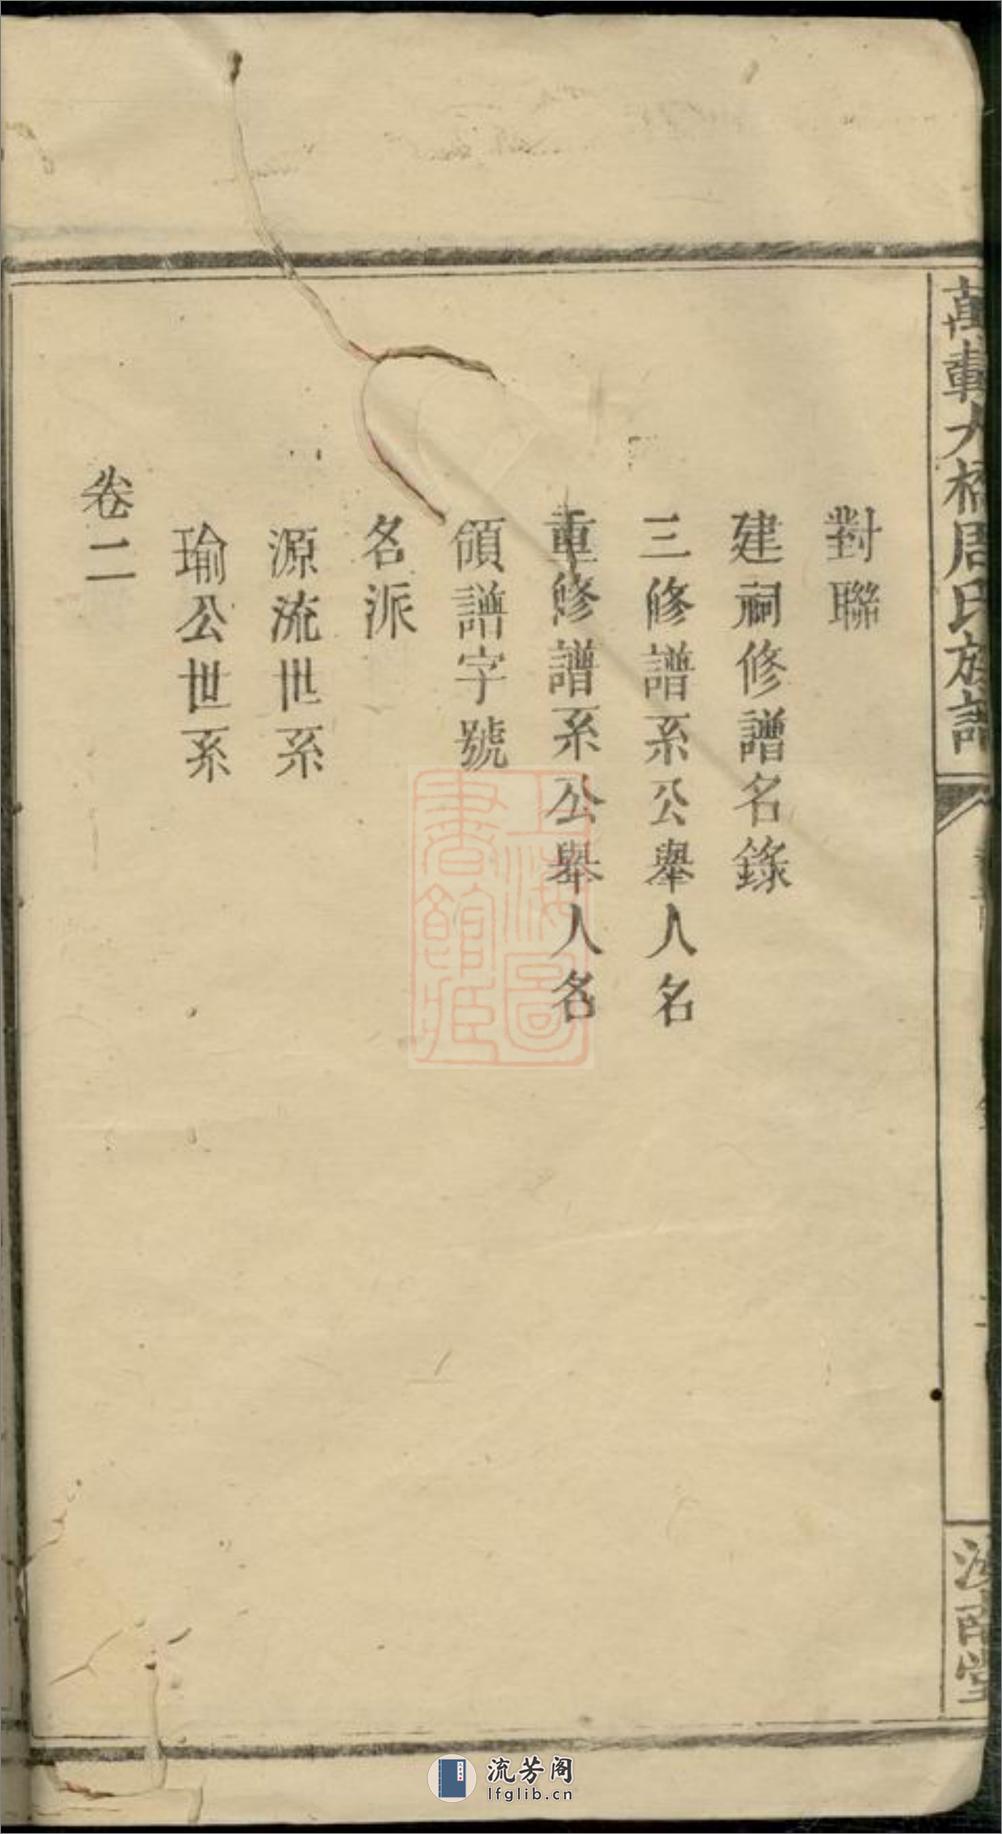 萬載大橋周氏族譜
汝南堂
對聯
建祠修譜名錄
三修譜系公舉人名
重修譜系公舉人名
領譜字號
名派
源流世系
瑜公世系
卷二
上海圖書館藏
流芳阁
lfglib.cn